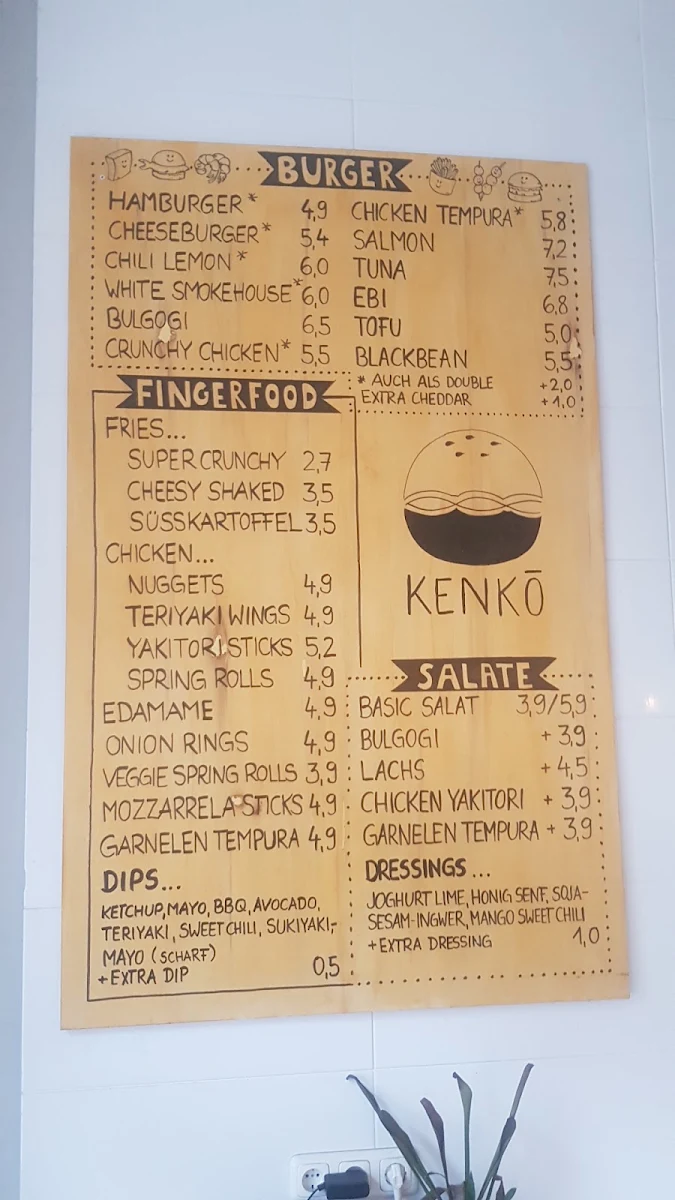 BURGER
HAMBURGER* 4,9
CHEESEBURGER* 5,4
CHILI LEMON* 6,0
WHITE SMOKEHOUSE* 6,0
BULGOGI 6,5
CRUNCHY CHICKEN* 5,5
CHICKEN TEMPURA* 5,8
SALMON 7,2
TUNA 7,5
EBI 6,8
TOFU 5,0
BLACKBEAN 5,5
* AUCH ALS DOUBLE +2,0
EXTRA CHEDDAR +1,0
FINGERFOOD
FRIES...
SUPER CRUNCHY 2,7
CHEESY SHAKED 3,5
SÜSSKARTOFFEL 3,5
CHICKEN...
NUGGETS 4,9
TERIYAKI WINGS 4,9
YAKITORI STICKS 5,2
SPRING ROLLS 4,9
EDAMAME 4,9
ONION RINGS 4,9
VEGGIE SPRING ROLLS 3,9
MOZZARRELA-STICKS 4,9
GARNELEN TEMPURA 4,9
DIPS...
KETCHUP, MAYO, BBQ, AVOCADO,
TERIYAKI, SWEET CHILI, SUKIYAKI,-
MAYO (SCHARF)
+EXTRA DIP 0,5
KENKŌ
SALATE
BASIC SALAT 3,9/5,9
BULGOGI +3,9
LACHS +4,5
CHICKEN YAKITORI +3,9
GARNELEN TEMPURA +3,9
DRESSINGS...
JOGHURT LIME, HONIG SENF, SOJA-
SESAM-INGWER, MANGO SWEET CHILI
+EXTRA DRESSING 1,0